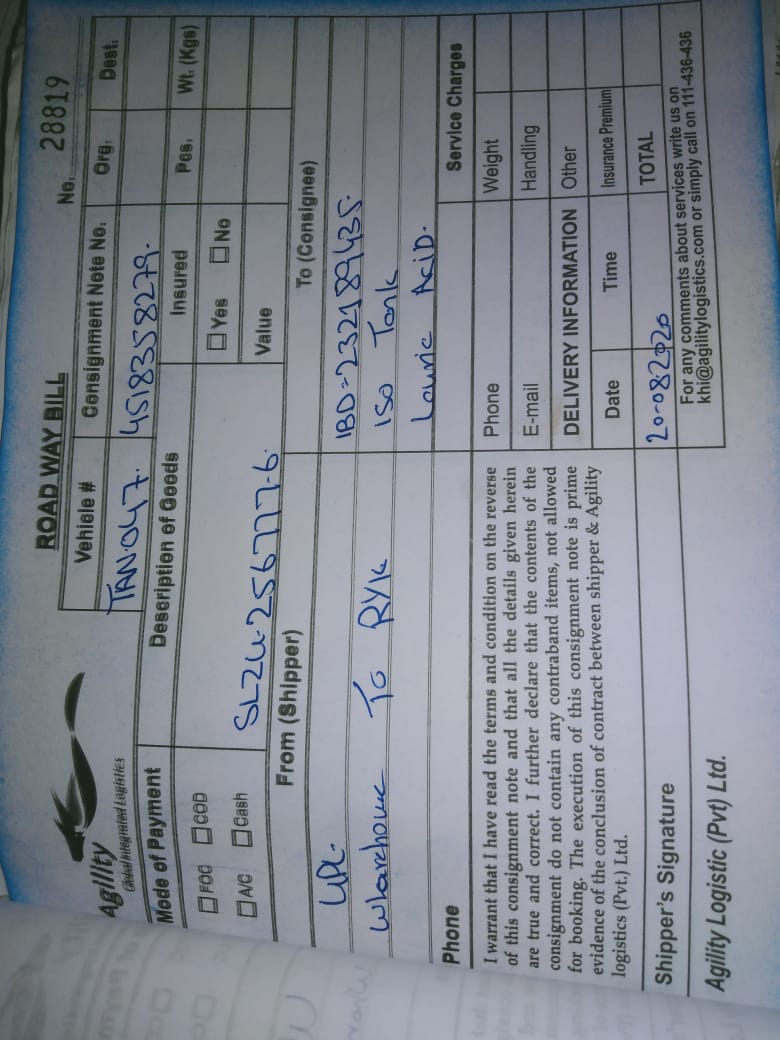 ROAD WAY BILL
No. 28819
Agility
Global Integrated Logistics
Vehicle #
Consignment Note No.
Org.
Dest.
TAN-047.
4518358279.
Mode of Payment
Description of Goods
Insured
Pcs.
Wt. (Kgs)
FOC
COD
Yes
No
A/C
Cash
SLZU-256777-6
Value
From (Shipper)
To (Consignee)
UPL
IBD=232189435
Warehouse To RYK
ISO Tank
Lauric Acid.
Phone
Service Charges
I warrant that I have read the terms and condition on the reverse
of this consignment note and that all the details given herein
are true and correct. I further declare that the contents of the
consignment do not contain any contraband items, not allowed
for booking. The execution of this consignment note is prime
evidence of the conclusion of contract between shipper & Agility
logistics (Pvt.) Ltd.
Phone
Weight
E-mail
Handling
DELIVERY INFORMATION
Other
Date
Time
Insurance Premium
20-08-2020
TOTAL
Shipper's Signature
For any comments about services write us on
khi@agilitylogistics.com or simply call on 111-436-436
Agility Logistic (Pvt) Ltd.